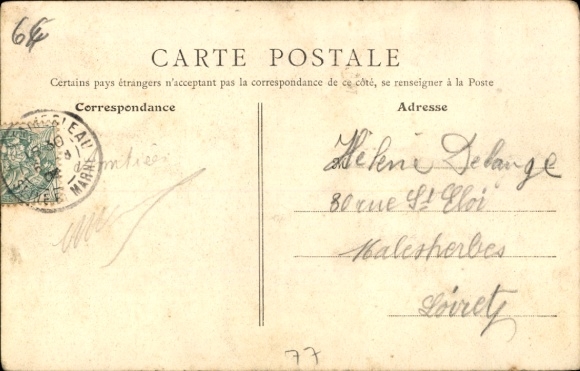 CARTE POSTALE
Certains pays étrangers n'acceptant pas la correspondance de ce côté, se renseigner à la Poste
Correspondance
Adresse
Hélène Delange
80 rue St Eloi
Malesherbes
Loiret
SEINE & MARNE
77